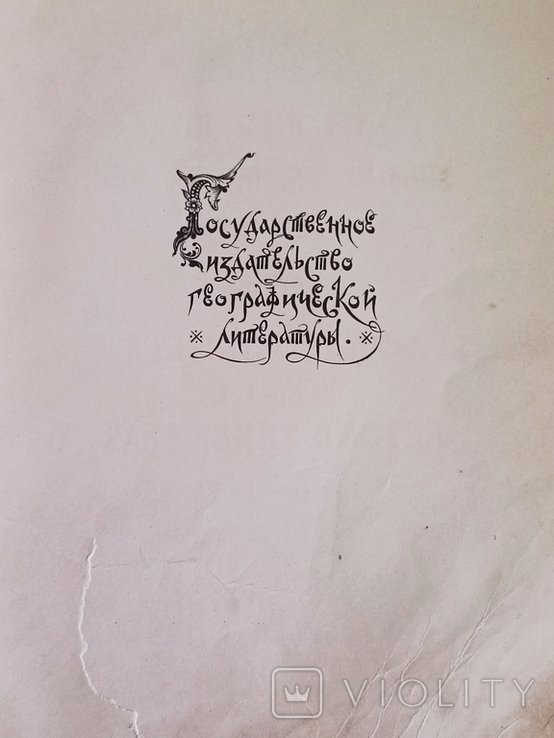 Государственное
издательство
географической
литературы.
VIOLITY